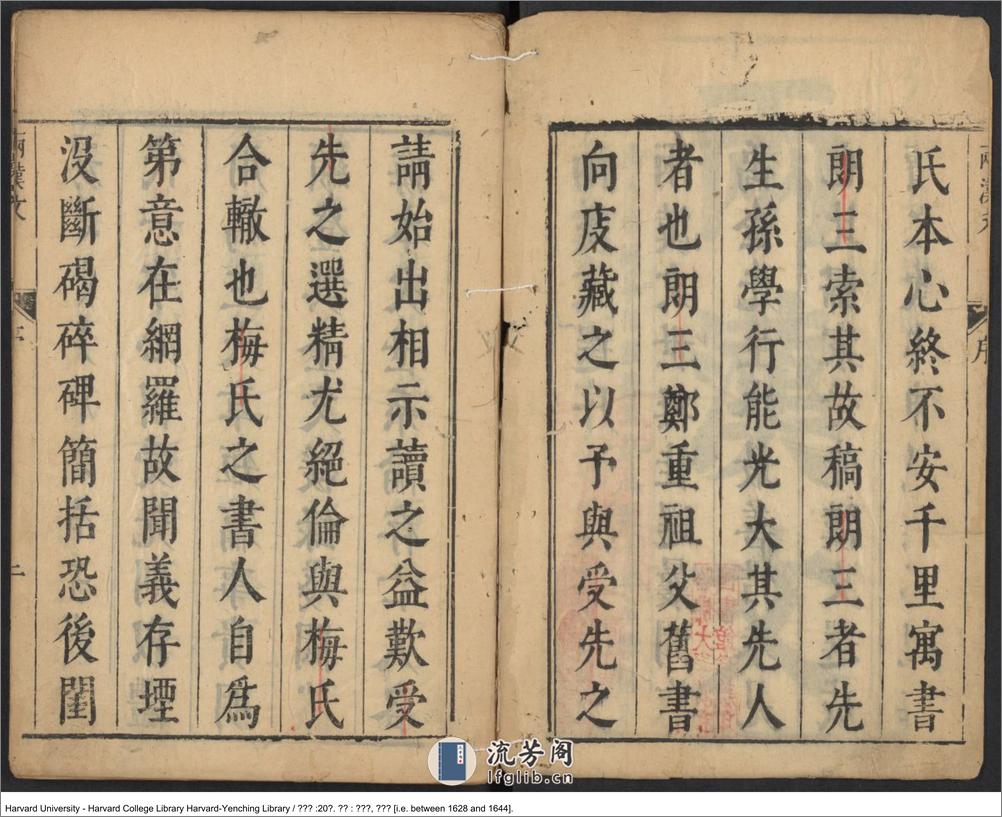 氏本心終不安千里寓書
朗三索其故稿朗三者先
生孫學行能光大其先人
者也朗三鄭重祖父舊書
向庋藏之以予與受先之
請始出相示讀之益歎受
先之選精尤絕倫與梅氏
合轍也梅氏之書人自爲
第意在網羅故聞義存堙
沒斷碣碎碑簡括恐後閨
兩漢文
序
二
流芳阁
lfglib.cn
Harvard University - Harvard College Library Harvard-Yenching Library / ??? :20?. ?? : ???, ??? [i.e. between 1628 and 1644].